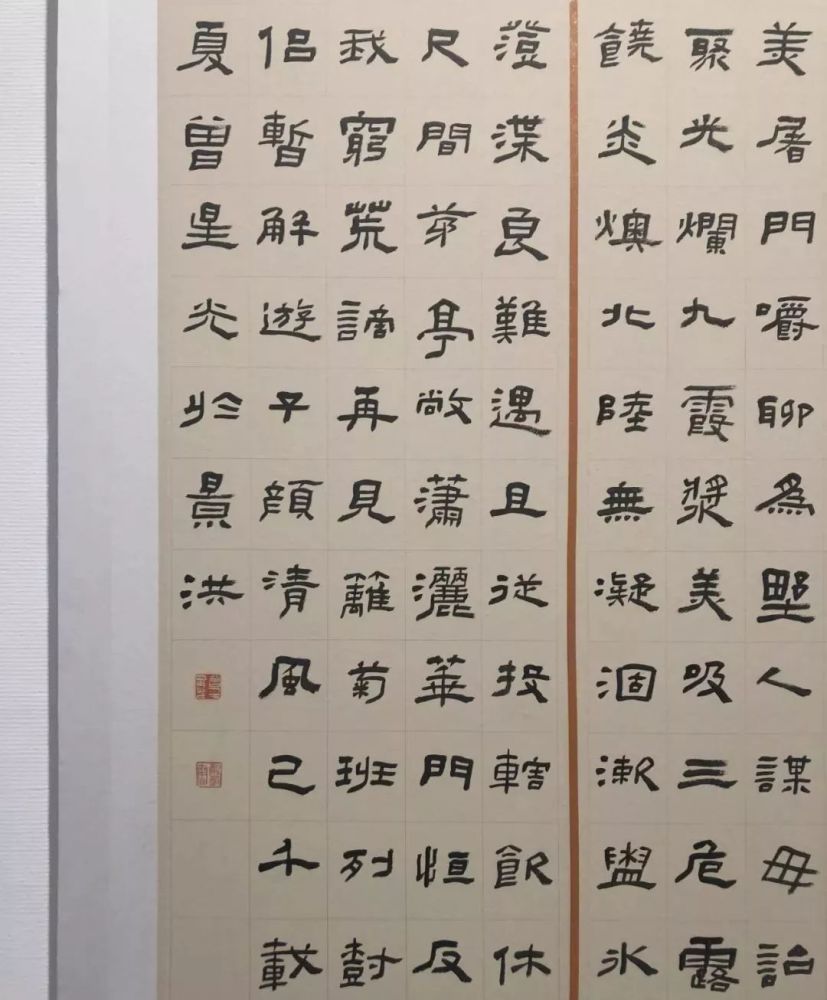 美屠門嚼聊為野人謀毋詒
聚光爛九霞漿美吸三危露
饒炎燠北陸無凝涸漱盥冰
渫良難遇且從投轄飲休
尺間茅亭敞瀟灑蓽門恒反
我窮荒謫再見籬菊班列封
侶暫解遊子顏清風已千載
夏曾星光於景洪